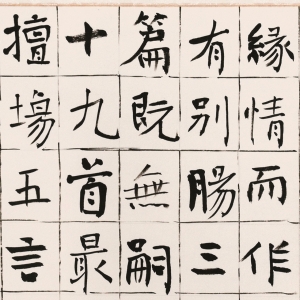 緣情而作
有別腸三
篇既無嗣
十九首最
擅場五言